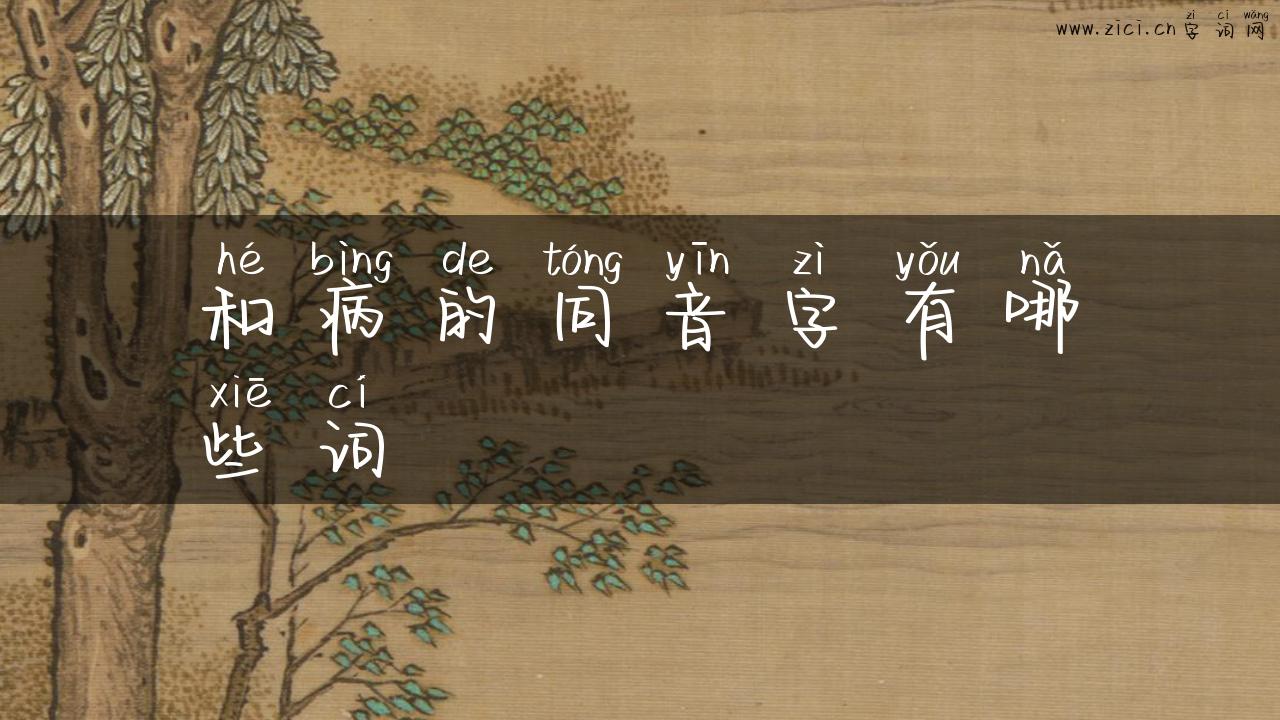 zì cí wǎng
www.zici.cn 字词网
hé bìng de tóng yīn zì yǒu nǎ
和病的同音字有哪
xiē cí
些词